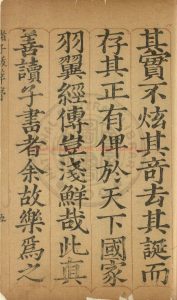 其實不炫其奇去其誕而
存其正有俾於天下國家
羽翼經傳豈淺鮮哉此真
善讀子書者余故樂為之